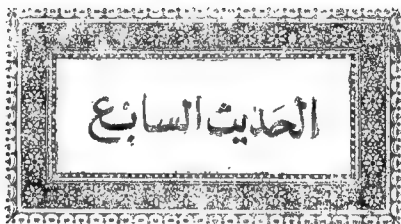 الحَديث السابع